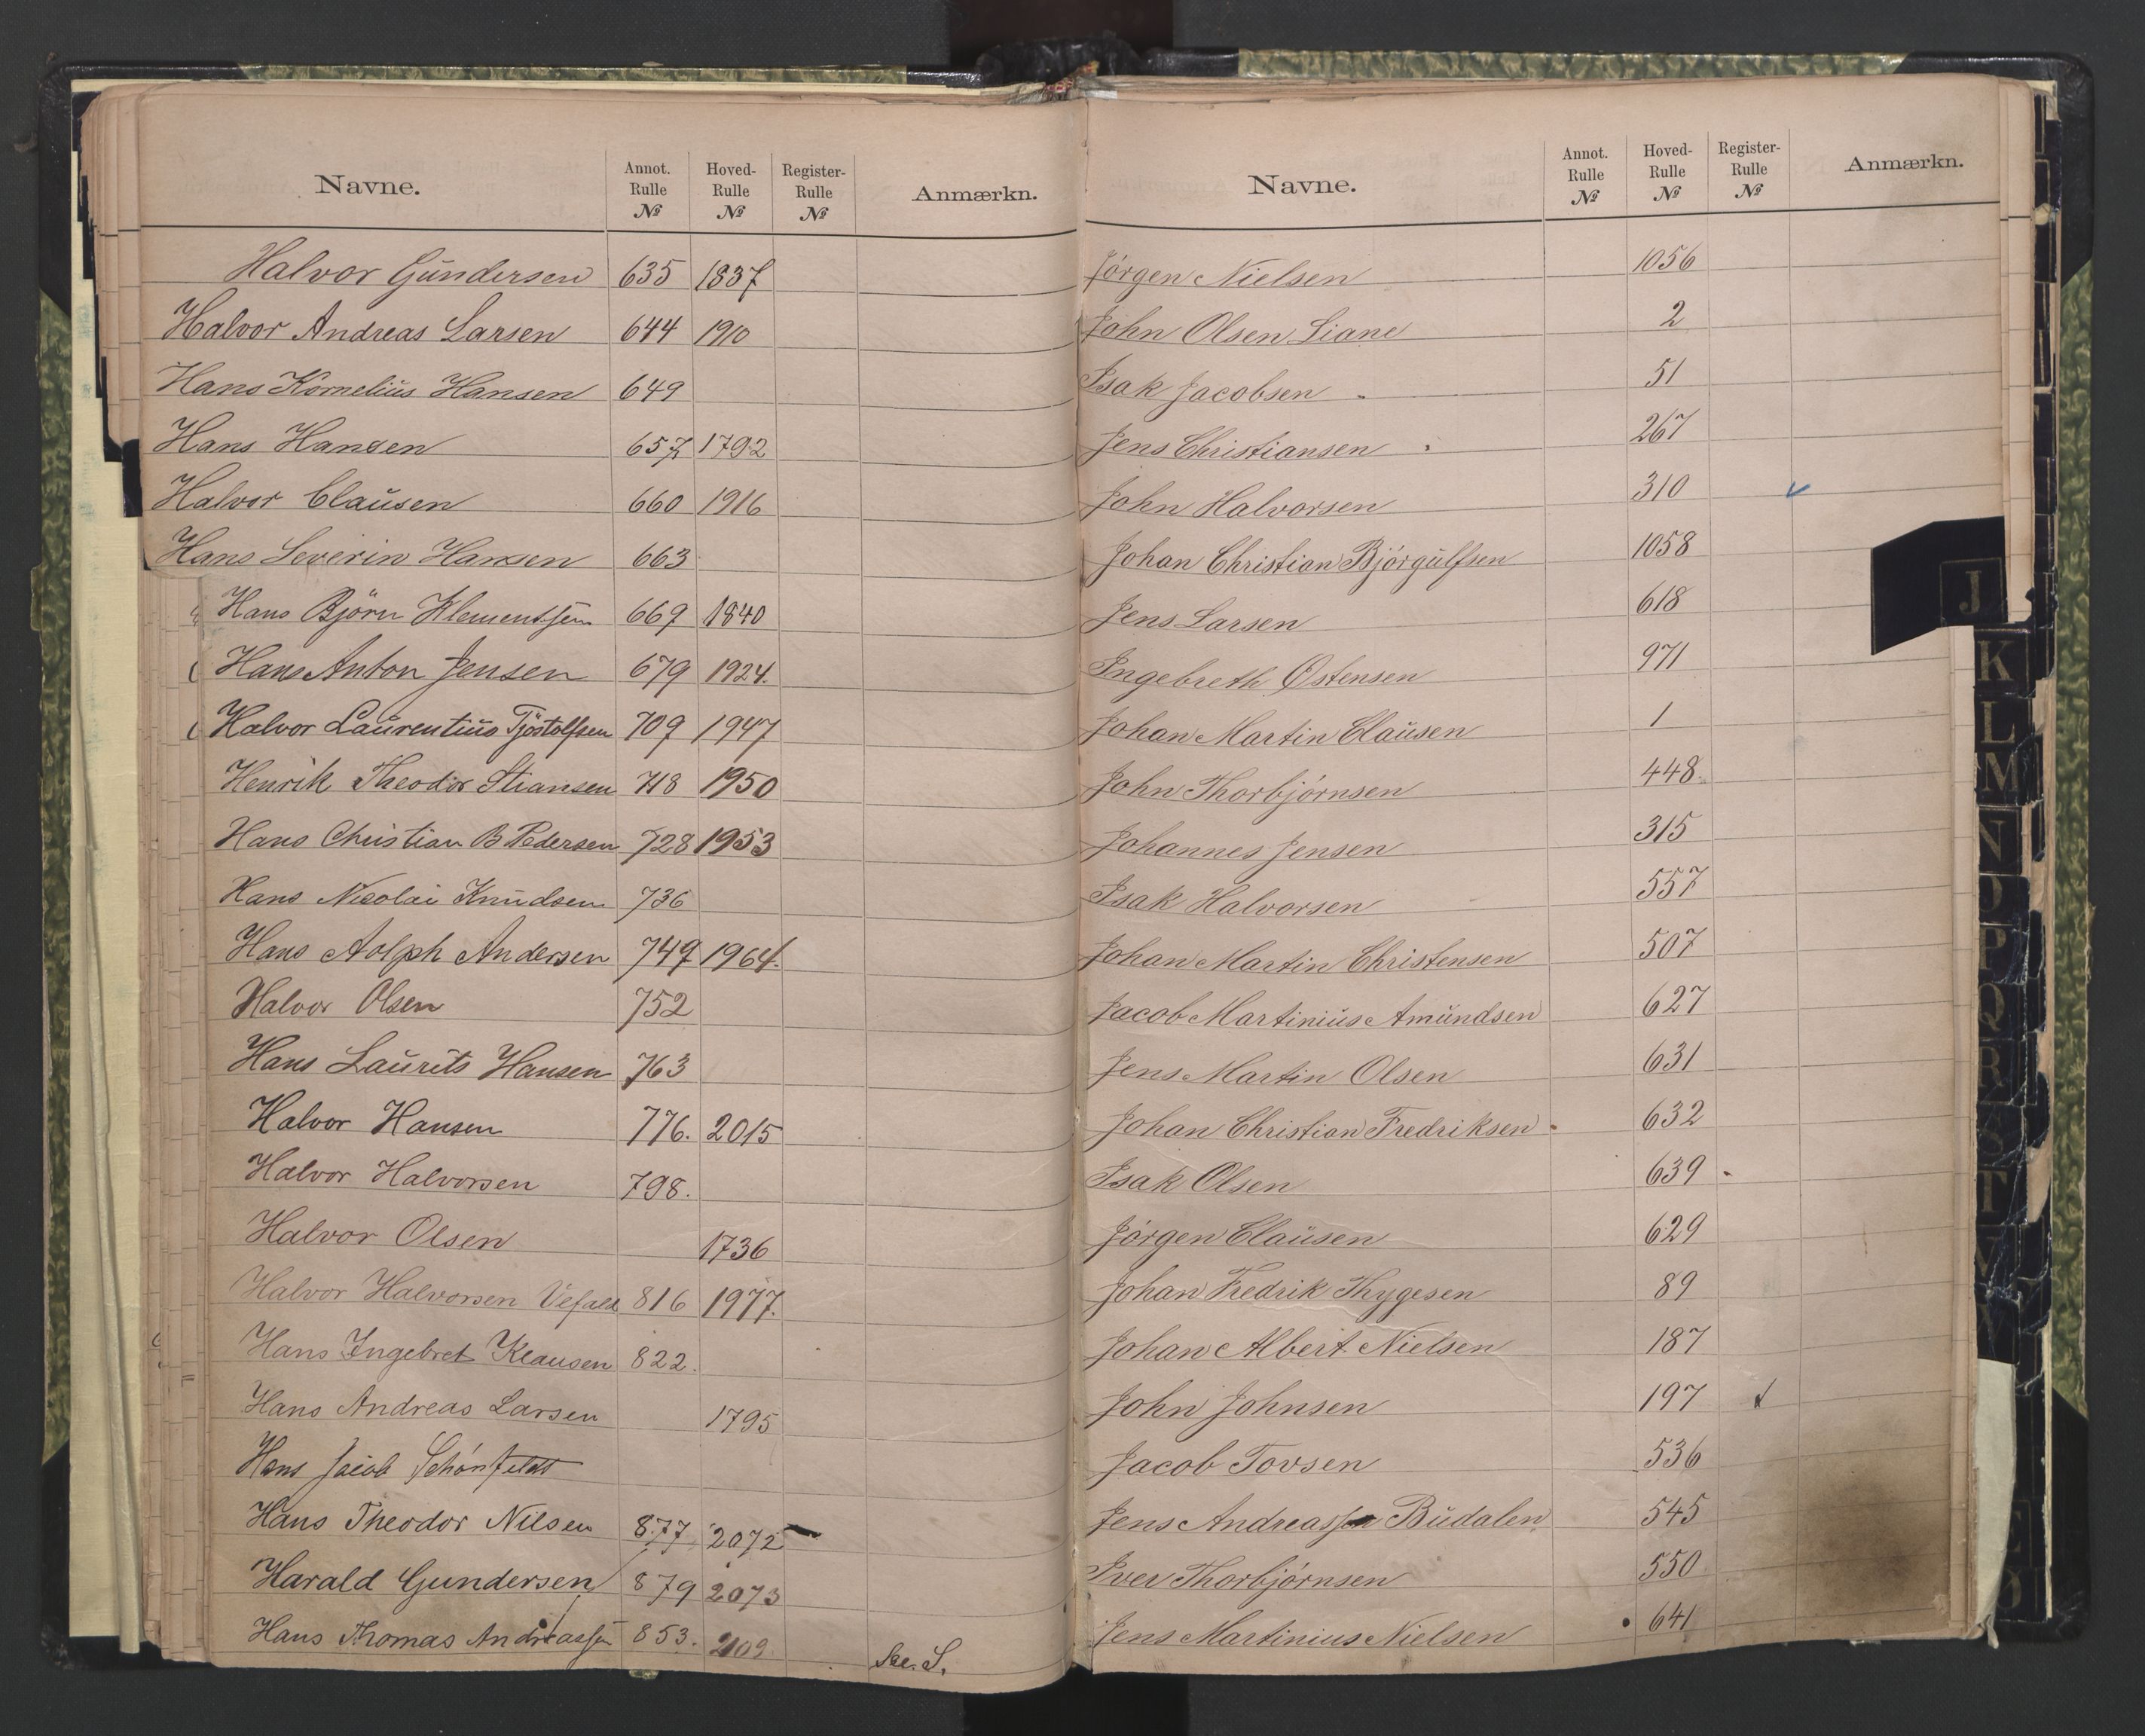 Navne. Annot. Rulle № Hoved-Rulle № Register-Rulle № Anmærkn.
Halvor Gundersen 635 1837
Halvor Andreas Larsen 644 1910
Hans Kornelius Hansen 649
Hans Hansen 657 1792
Halvor Clausen 660 1916
Hans Severin Hansen 663
Hans Björn Klementsen 669 1840
Hans Anton Jensen 679 1924.
Halvor Laurentius Tjöstolfsen 709 1947
Henrik Theodor Stiansen 718 1950
Hans Christian B Pedersen 728 1953
Hans Nicolai Knudsen 736
Hans Adolph Andersen 749 1964.
Halvor Olsen 752
Hans Laurits Hansen 763
Halvor Hansen 776. 2015
Halvor Halvorsen 798.
Halvor Olsen 1736
Halvor Halvorsen 816 1977.
Hans Ingebret Klausen 822.
Hans Andreas Larsen 1795
Hans Jacob Schönfeldt
Hans Theodor Nilsen 877 2072
Harald Gundersen 879 2073
Hans Thomas Andreassen 853. 2109
Navne. Annot. Rulle № Hoved-Rulle № Register-Rulle № Anmærkn.
Jörgen Nielsen 1056
John Olsen Liane 2
Isak Jacobsen 51
Jens Christiansen 267
John Halvorsen 310
Johan Christian Björgulfsen 1058
Jens Larsen 618
Ingebreth Østensen 971
Johan Martin Clausen 1
John Thorbjörnsen 448
Johannes Jensen 315
Isak Halvorsen 557
Johan Martin Christensen 507
Jacob Martinius Amundsen 627
Jens Martin Olsen 631
Johan Christian Fredriksen 632
Isak Olsen 639
Jörgen Clausen 629
Johan Fredrik Thygesen 89
Johan Albert Nielsen 187
John Johnsen 197
Jacob Tovsen 536
Jens Andreassen Budalen 545
Iver Thorbjörnsen 550
Jens Martinius Nielsen 641
J
K
L
M
N
O
P
Q
R
S
T
V